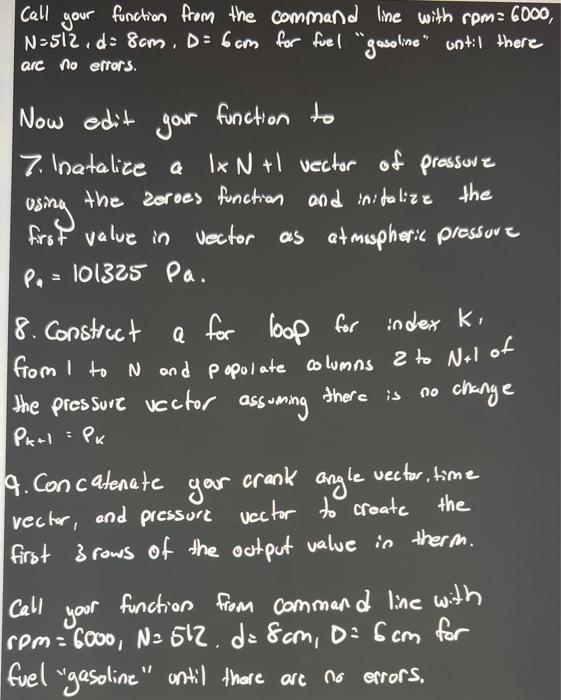 Call your function from the command line with rpm = 6000,
N=512, d= 8cm, D= 6cm for fuel "gasoline" until there
are no errors.
Now edit your function to
7. Inatalize a 1x N +1 vector of pressure
using the zeroes function and initalize the
first value in vector as atmospheric pressure
Pa = 101325 Pa.
8. Construct a for loop for index K,
from 1 to N and populate columns 2 to N+1 of
the pressure vector assuming there is no change
PK+1 = PK
9. Concatenate your crank angle vector, time
vector, and pressure vector to create the
first 3 rows of the output value in therm.
Call your function from command line with
rpm = 6000, N= 512, d= 8cm, D= 6cm for
fuel "gasoline" until there are no errors.